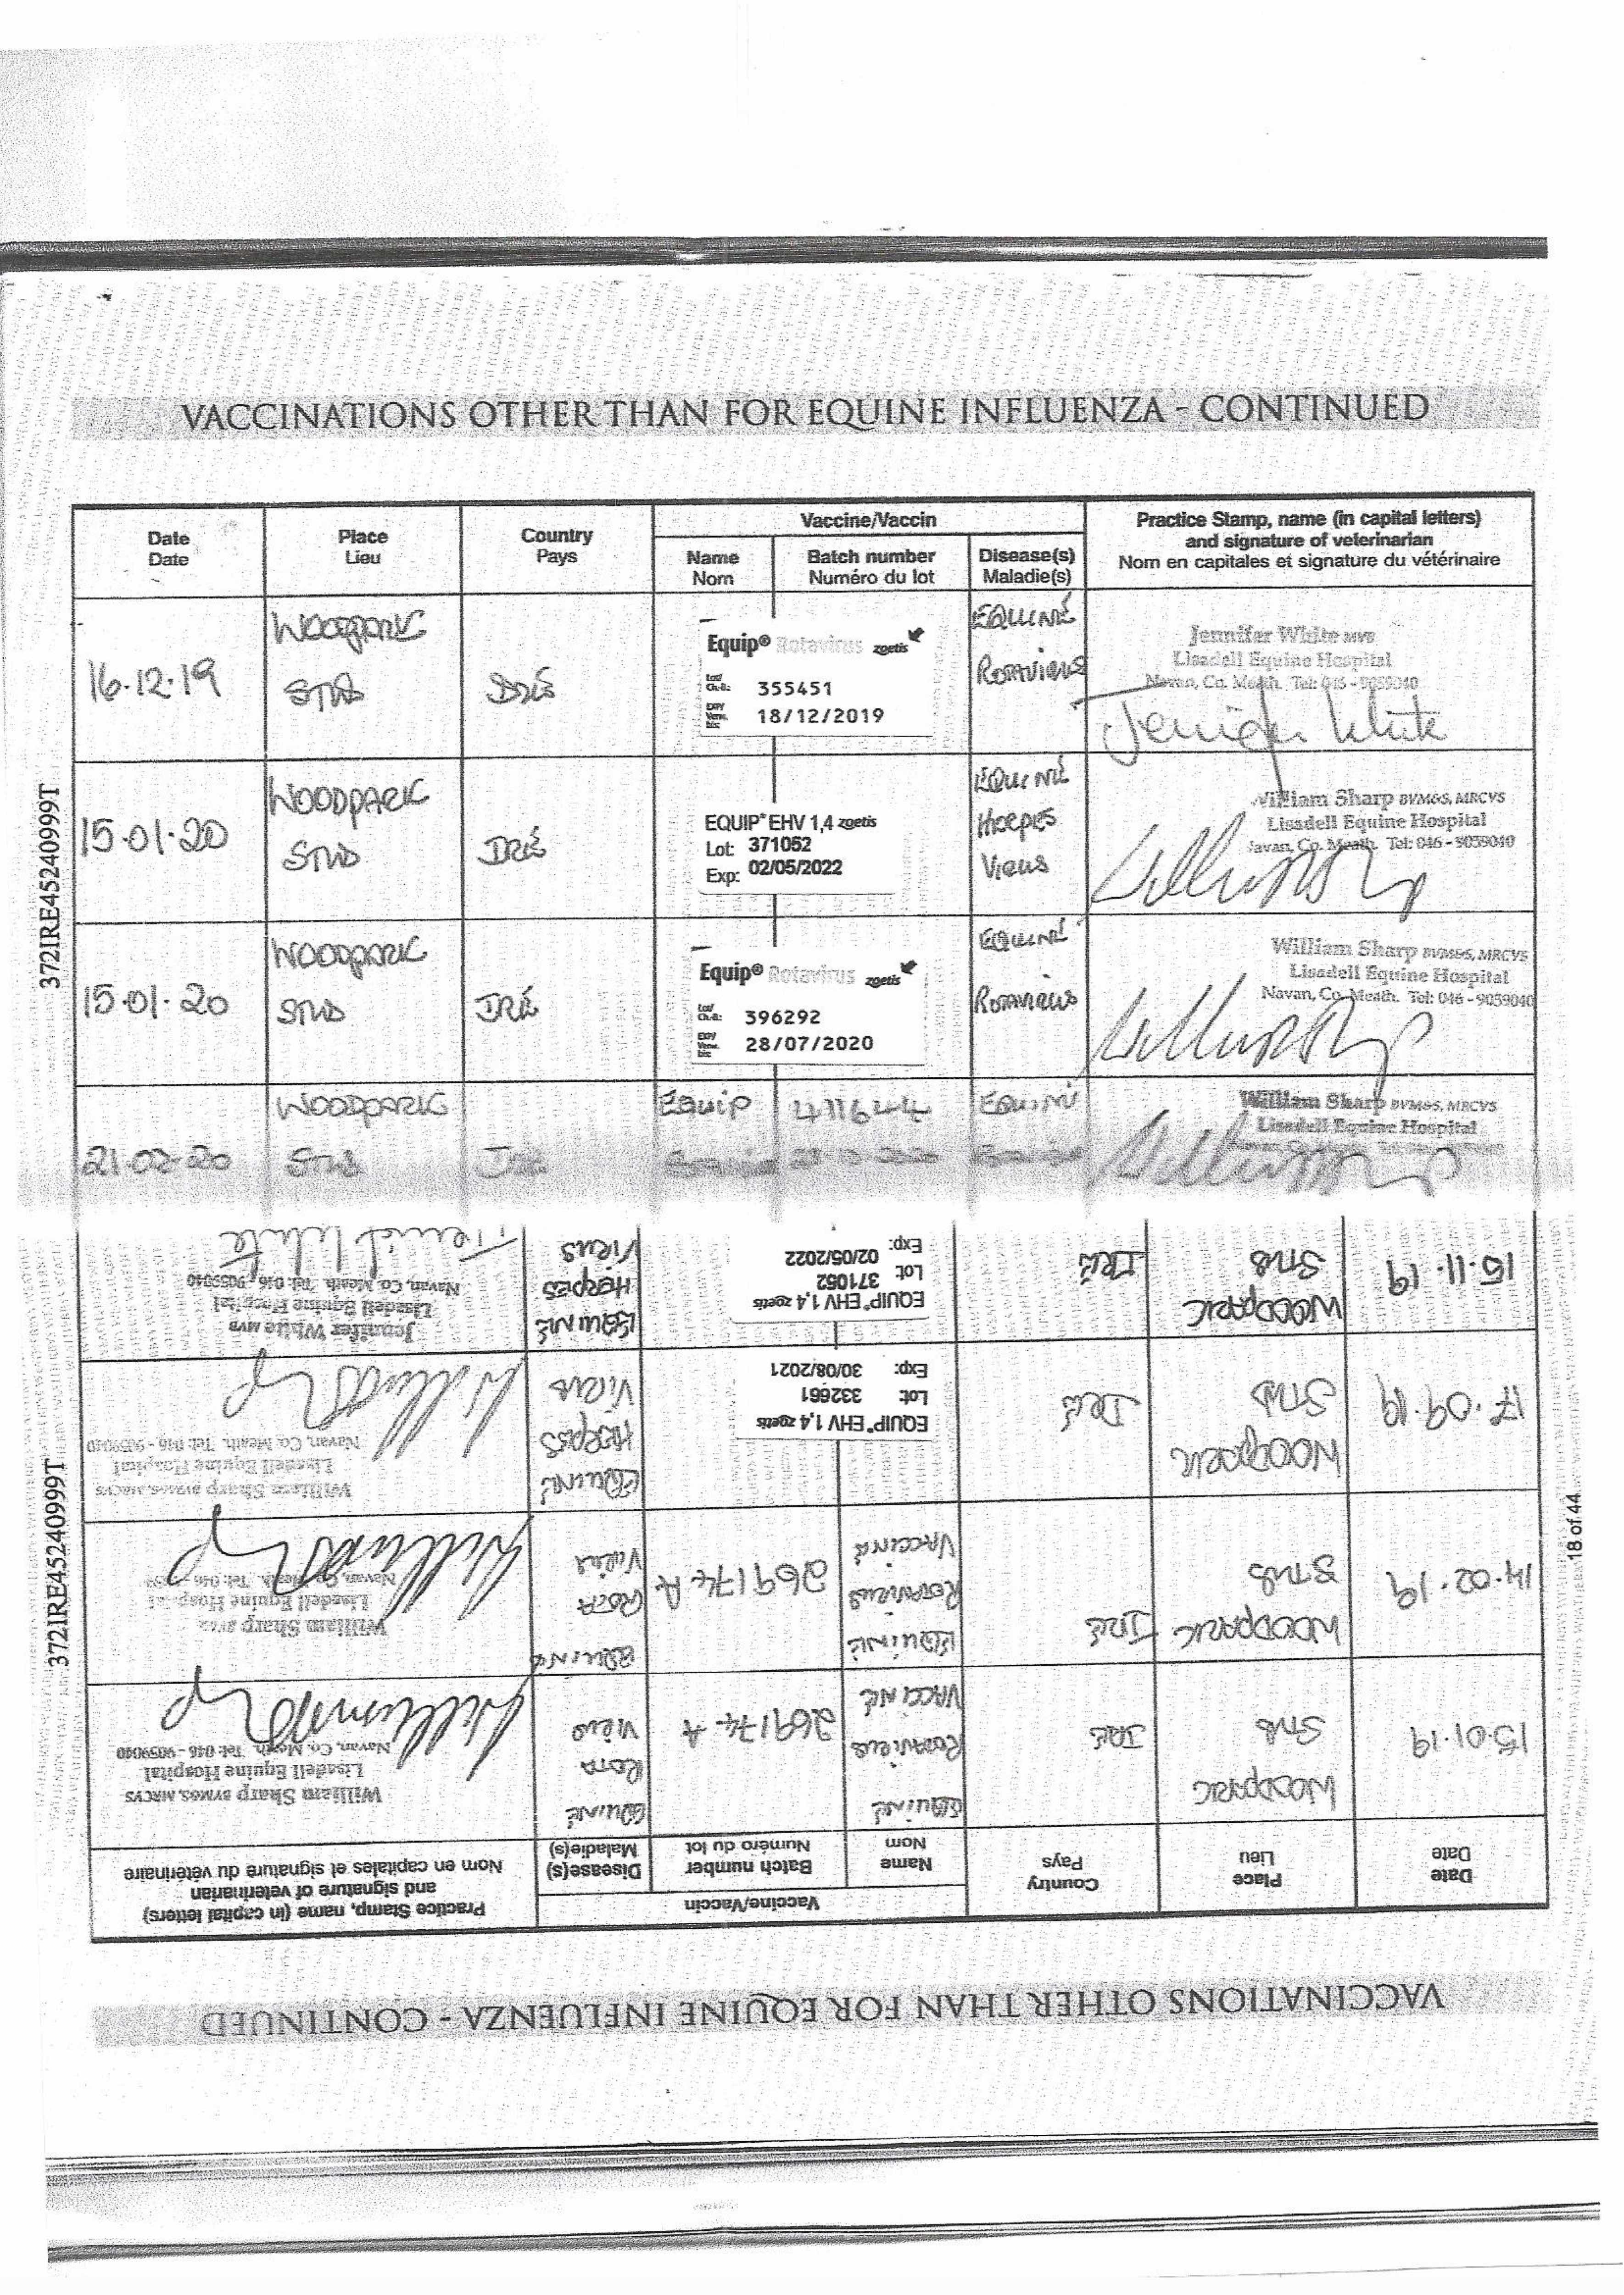 VACCINATIONS OTHER THAN FOR EQUINE INFLUENZA - CONTINUED
372IRE45240999T
Date
Date
Place
Lieu
Country
Pays
Vaccine/Vaccin
Name
Nom
Batch number
Numéro du lot
Disease(s)
Maladie(s)
Practice Stamp, name (in capital letters)
and signature of veterinarian
Nom en capitales et signature du vétérinaire
16.12.19
WOODPARK
STUD
IRE
Equip® Rotavirus zoetis
Lot/
Ch.-B.: 355451
EXP/
Verw. bis: 18/12/2019
EQUINE
ROTAVIRUS
Jennifer White MVB
Lisadell Equine Hospital
Navan, Co. Meath. Tel: 046 - 9059040
Jennifer White
15.01.20
WOODPARK
STUD
IRE
EQUIP® EHV 1,4 zoetis
Lot: 371052
Exp: 02/05/2022
EQUINE
HERPES
VIRUS
William Sharp BVM&S, MRCVS
Lisadell Equine Hospital
Navan, Co. Meath. Tel: 046 - 9059040
15.01.20
WOODPARK
STUD
IRE
Equip® Rotavirus zoetis
Lot/
Ch.-B.: 396292
EXP/
Verw. bis: 28/07/2020
EQUINE
ROTAVIRUS
William Sharp BVM&S, MRCVS
Lisadell Equine Hospital
Navan, Co. Meath. Tel: 046 - 9059040
21.02.20
WOODPARK
STUD
IRE
EQUIP
EQUINE
William Sharp BVM&S, MRCVS
Lisadell Equine Hospital
VACCINATIONS OTHER THAN FOR EQUINE INFLUENZA - CONTINUED
Date
Date
Place
Lieu
Country
Pays
Vaccine/Vaccin
Name
Nom
Batch number
Numéro du lot
Disease(s)
Maladie(s)
Practice Stamp, name (in capital letters)
and signature of veterinarian
Nom en capitales et signature du vétérinaire
15.01.19
WOODPARK
STUD
IRE
EQUINE
ROTAVIRUS
VACCINE
269174 A
EQUINE
ROTA
VIRUS
William Sharp BVM&S, MRCVS
Lisadell Equine Hospital
Navan, Co. Meath. Tel: 046 - 9059040
14.02.19
WOODPARK
STUD
IRE
EQUINE
ROTAVIRUS
VACCINE
269174 A
EQUINE
ROTA
VIRUS
William Sharp
Lisadell Equine Hospital
Navan, Co. Meath. Tel: 046
17.09.19
WOODPARK
STUD
IRE
EQUIP® EHV 1,4 zoetis
Lot: 332661
Exp: 30/08/2021
EQUINE
HERPES
VIRUS
William Sharp BVM&S, MRCVS
Lisadell Equine Hospital
Navan, Co. Meath. Tel: 046 - 9059040
15.11.19
WOODPARK
STUD
IRE
EQUIP® EHV 1,4 zoetis
Lot: 371052
Exp: 02/05/2022
EQUINE
HERPES
VIRUS
Jennifer White MVB
Lisadell Equine Hospital
Navan, Co. Meath. Tel: 046 - 9059040
Jennifer White
372IRE45240999T
18 of 44